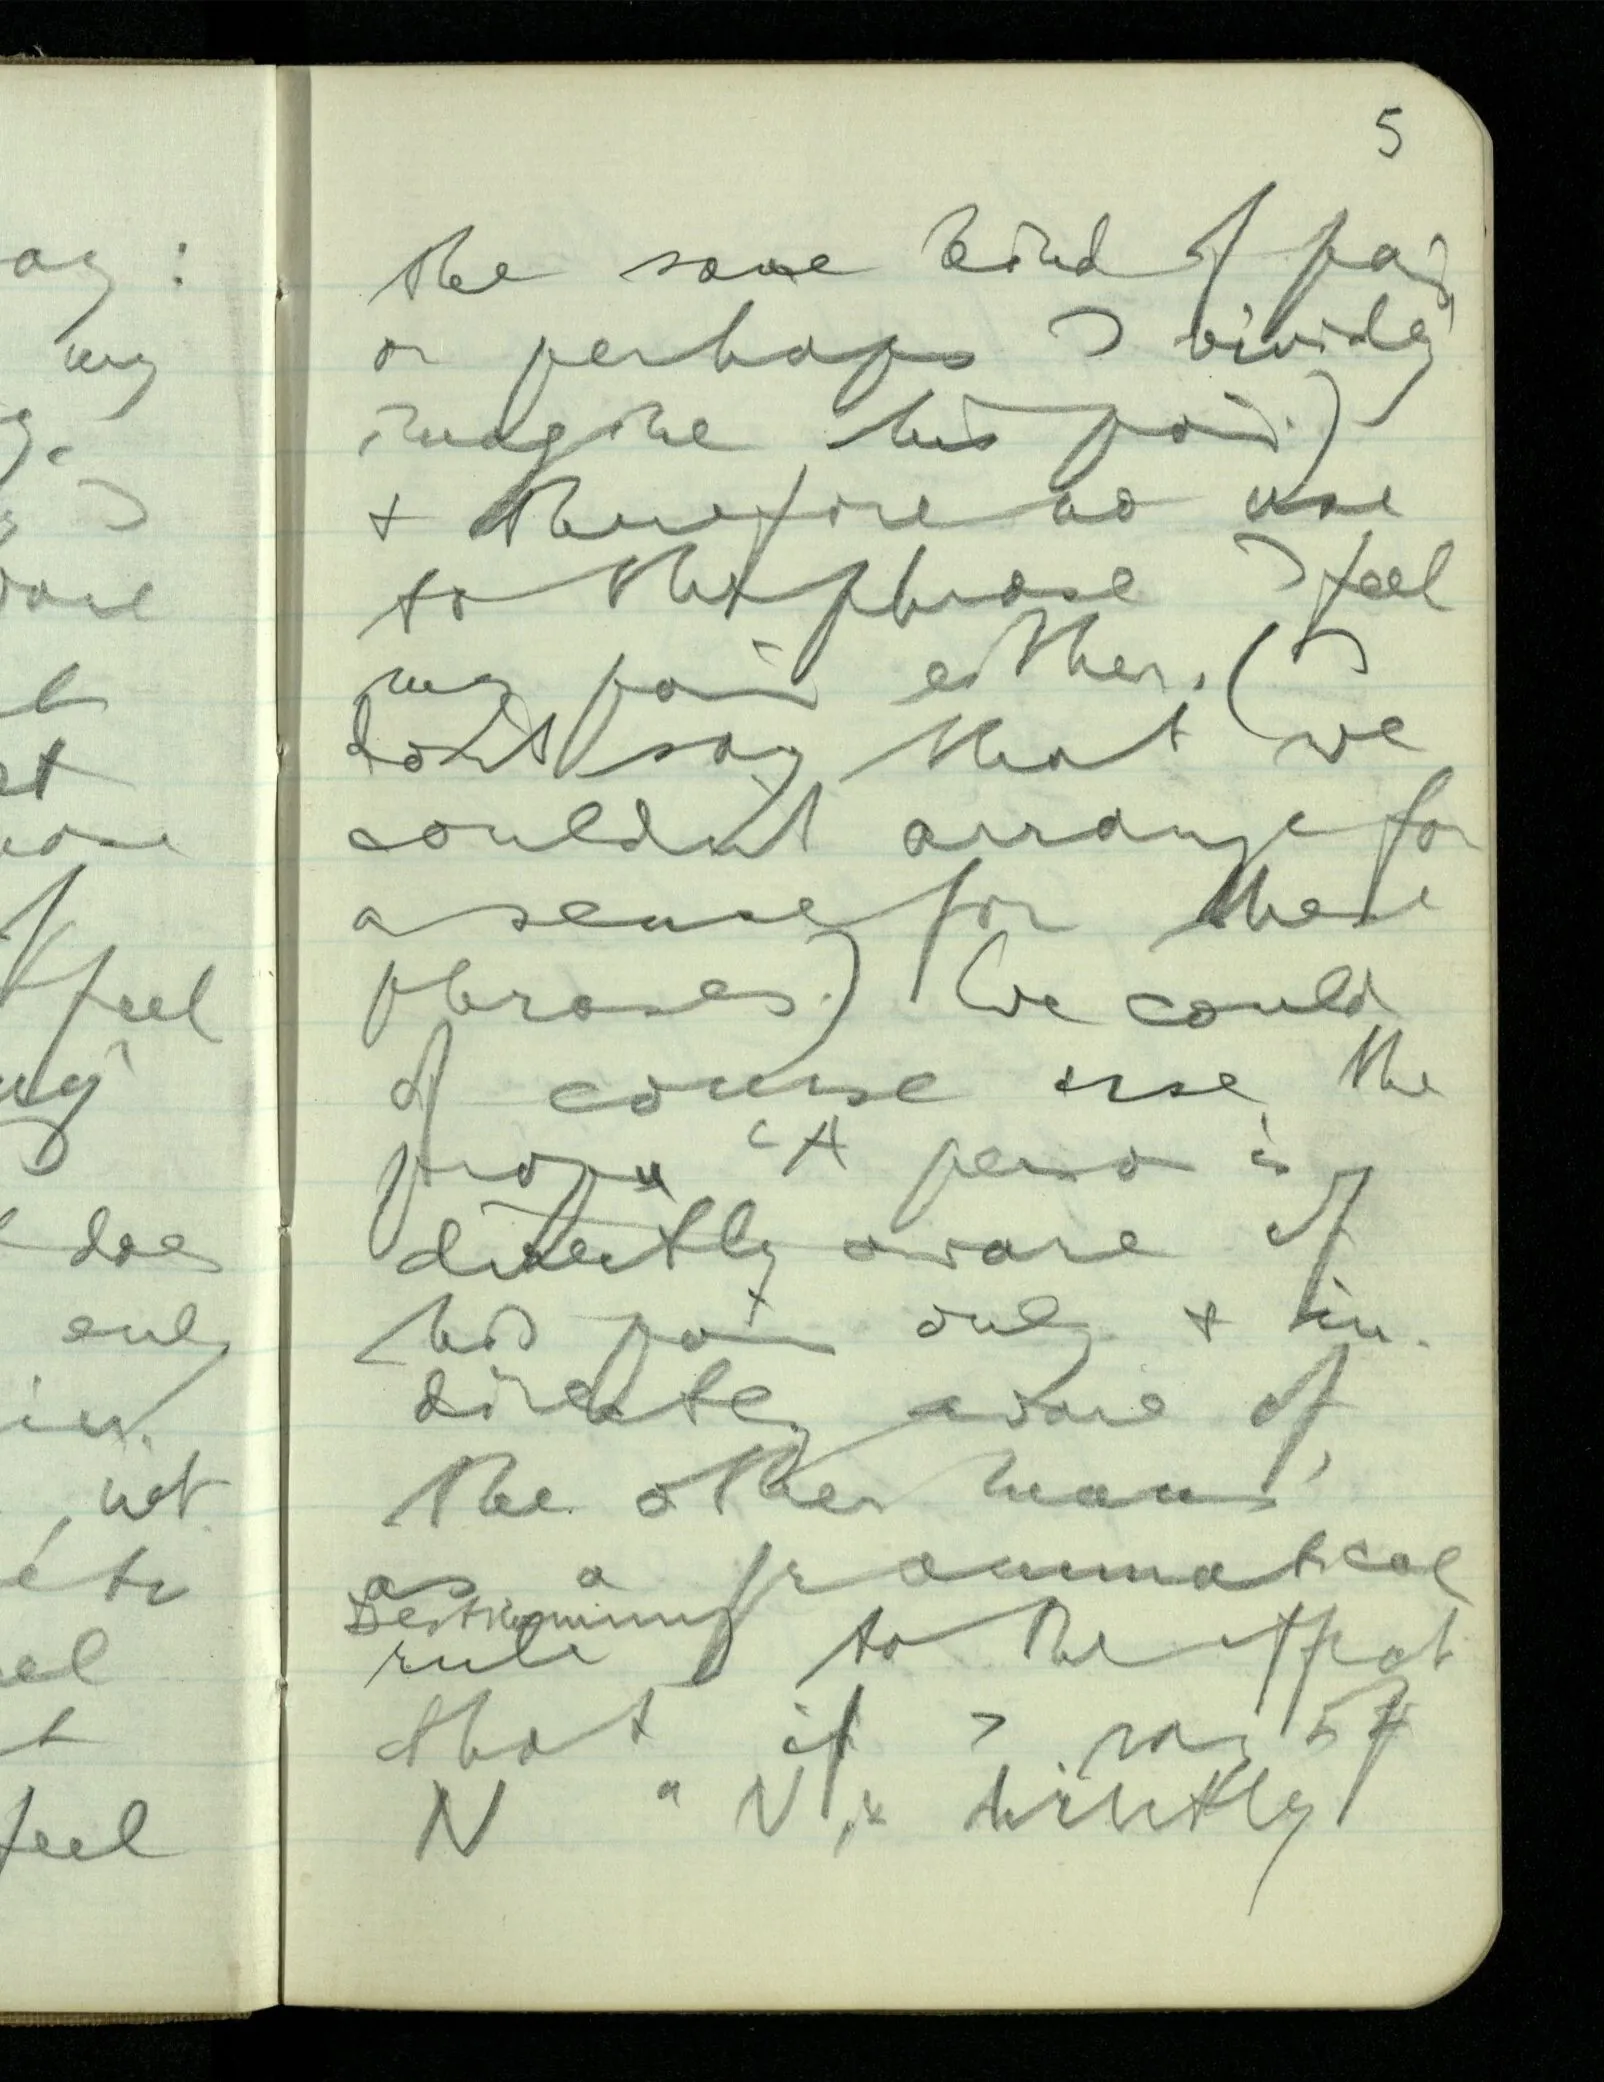 5
the same kind of pain
or perhaps I vividly
imagine his pain.)
& therefore no use
to the phrase I feel
my pain either. (I
don't say that we
couldn't arrange for
a sense for these
phrases.) We could
of course use the
prop "A person is
directly aware of
his pain only & in-
directly aware of
the other man's'
as a grammatical
Destraining
rule to the effect
that if I say of
N "N is directly
ay :
my
I
feel
does
only
not
feel